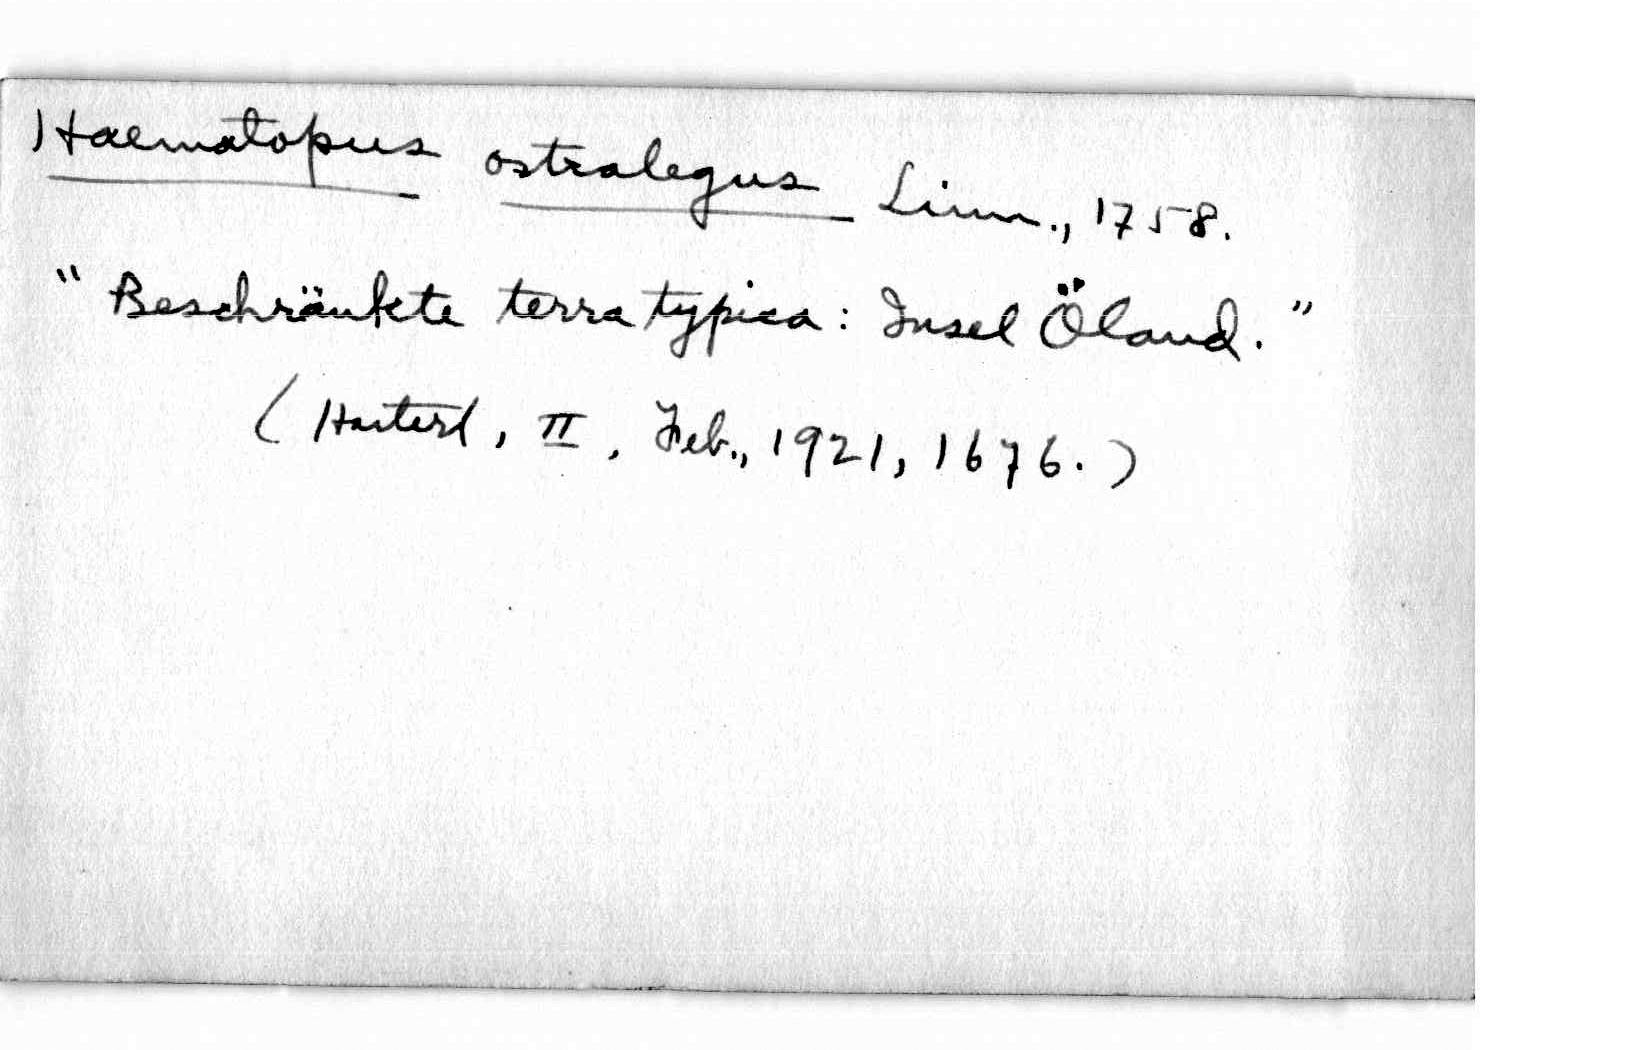 Haematopus ostralegus Linn., 1758.
"Beschränkte terra typica: Insel Öland."
(Hartert, II, Feb., 1921, 1676.)